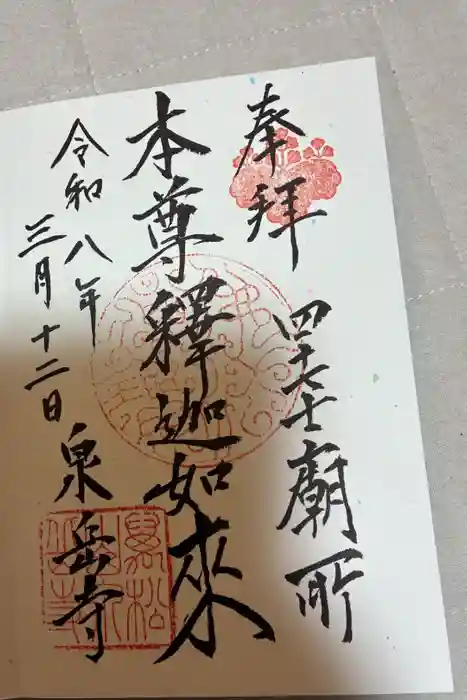 奉拝
四十七士廟所
本尊釋迦如來
令和八年
三月十二日
泉岳寺
萬松山泉岳寺